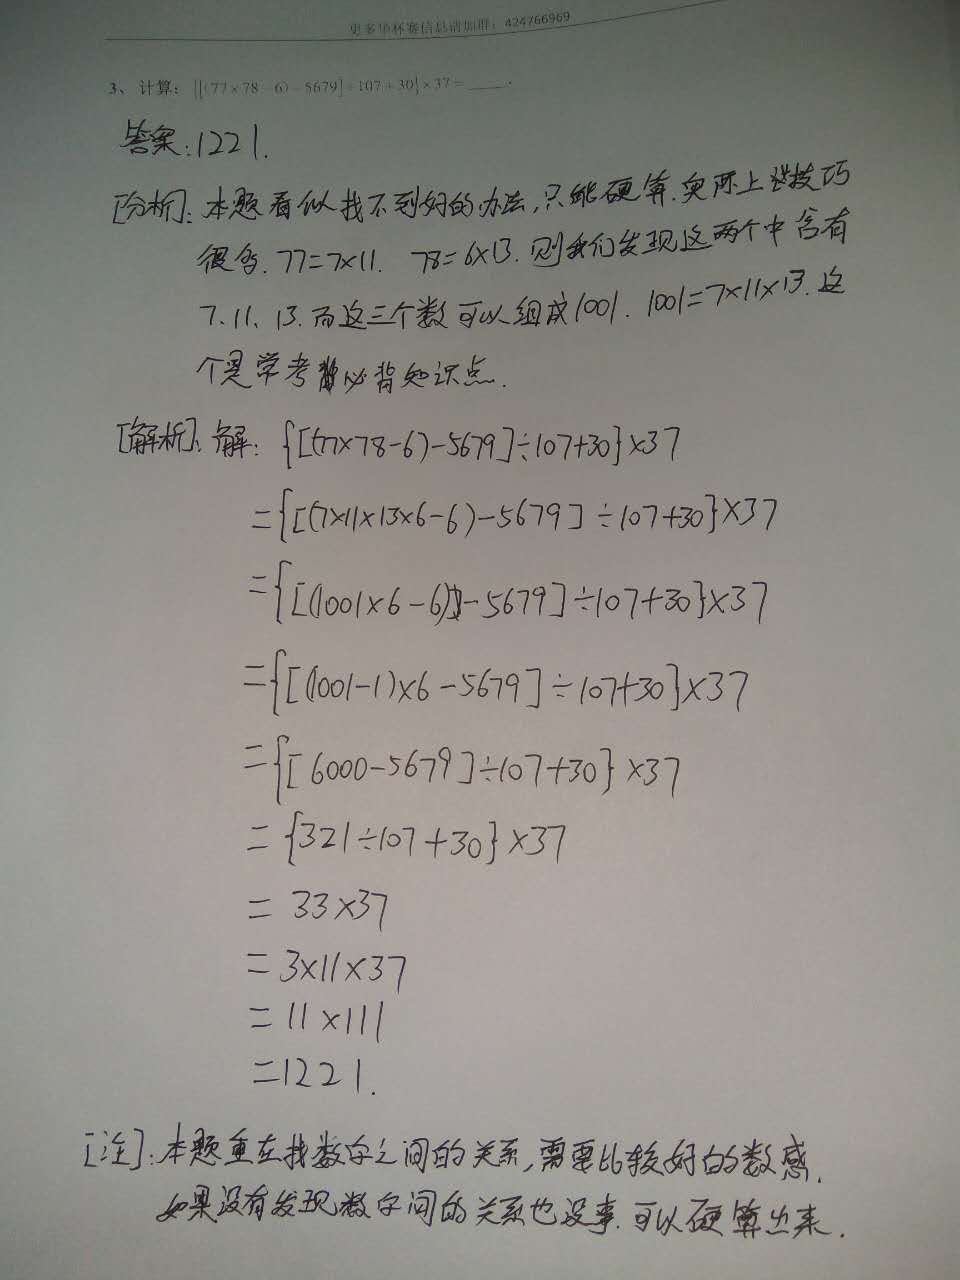 更多华杯赛信息请加群：424766969
3、 计算：{[(77×78-6)-5679]÷107+30}×37=____.
答案：1221.
[分析]：本题看似找不到好的办法,只能硬算.实际上技巧
很多.77=7×11. 78=6×13.则我们发现这两个中含有
7、11、13.而这三个数可以组成1001. 1001=7×11×13.这
个是学考必背知识点.
[解析]：解：{[(77×78-6)-5679]÷107+30}×37
={[(7×11×13×6-6)-5679]÷107+30}×37
={[(1001×6-6)-5679]÷107+30}×37
={[(1001-1)×6-5679]÷107+30}×37
={[6000-5679]÷107+30}×37
={321÷107+30}×37
=33×37
=3×11×37
=11×111
=1221.
[注]：本题重在找数字之间的关系,需要比较好的数感.
如果没有发现数字间的关系也没事.可以硬算出来.